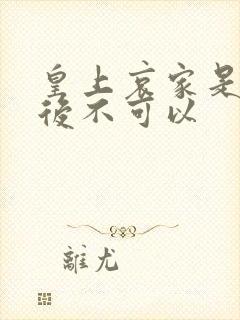 皇上哀家是
後不可以
離尤